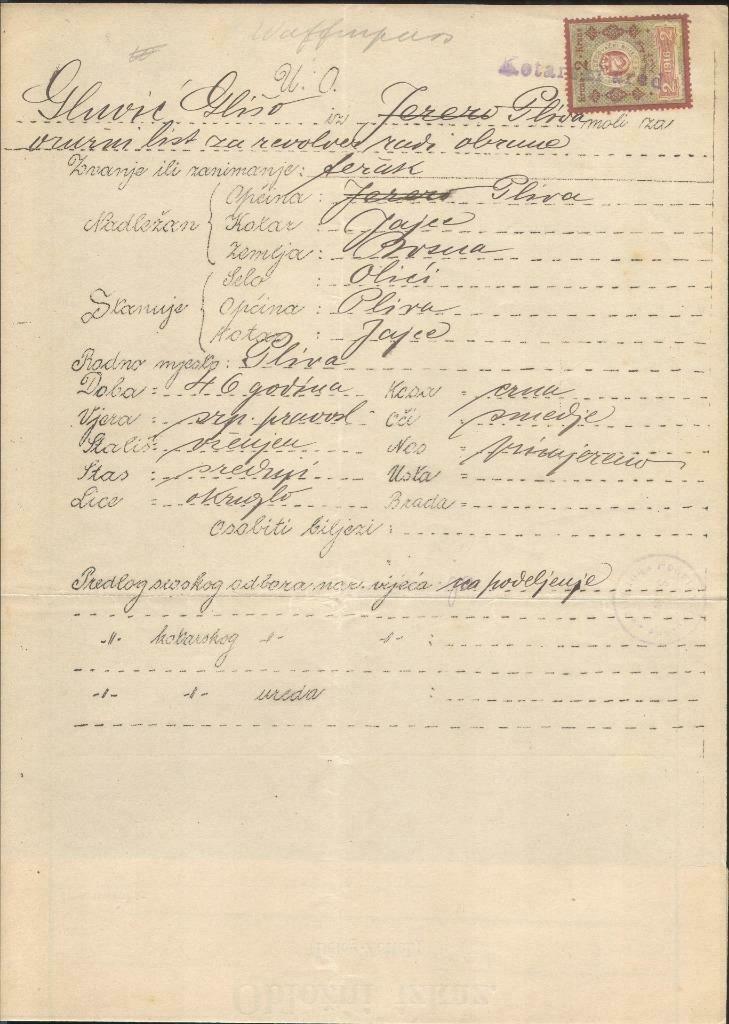 Waffenpass
U. O.
Kotarski ured
2 Krune 2
1916
Gluvić Glišo iz Jezero Pliva moli za
oružni list za revolver radi obrane
Zvanje ili zanimanje: težak
Nadležan
Općina: Jezero Pliva
Kotar: Jajce
Zemlja: Bosna
Stanuje
Selo: Olići
Općina: Pliva
Kotar: Jajce
Rodno mjesto: Pliva
Doba = 46 godina Kosa = crna
Vjera = srp. pravosl. Oči = smedje
Stališ = oženjen Nos = primjereno
Stas = srednji Usta =
Lice = okruglo Brada =
Osobiti biljezi:
Predlog seoskog odbora nar. vijeća: za podeljenje
-"- kotarskog -"- -"- :
-"- -"- ureda :
Obložni izkaz